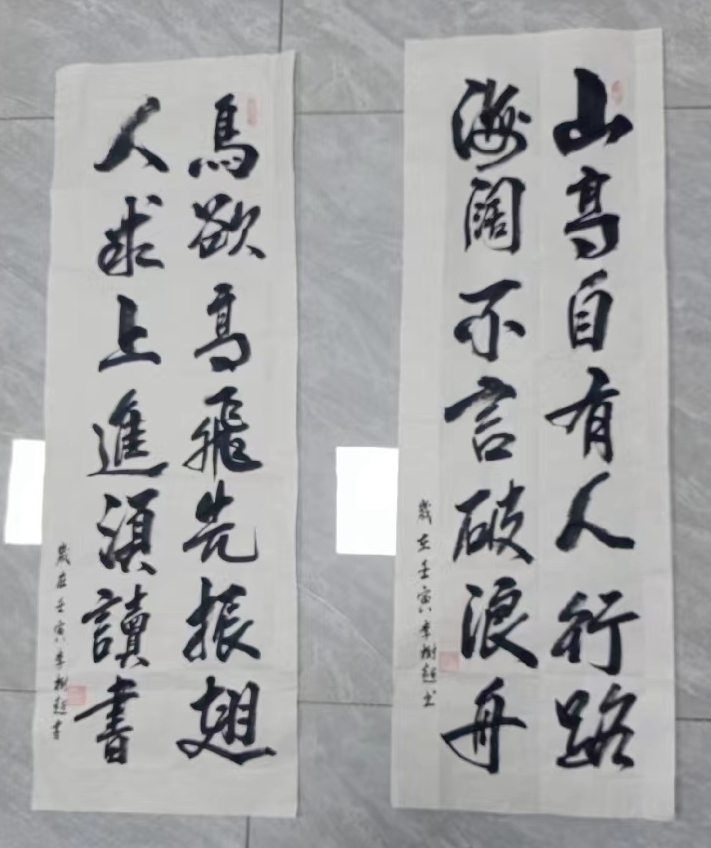 山高自有人行路
海阔不言破浪舟
歲在壬寅李樹超书
鳥欲高飛先振翅
人求上進須讀書
歲在壬寅李樹超書